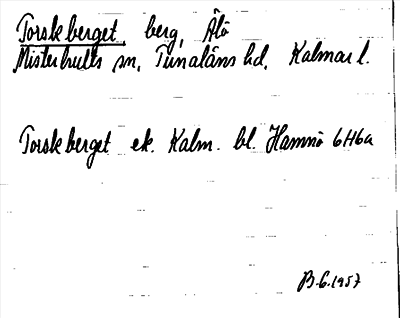 Torskberget, berg, Älö
Misterhults sn, Tunaläns hd. Kalmar l.
Torskberget ek. Kalm. bl. Hamnö 6H6a
B.G. 1957